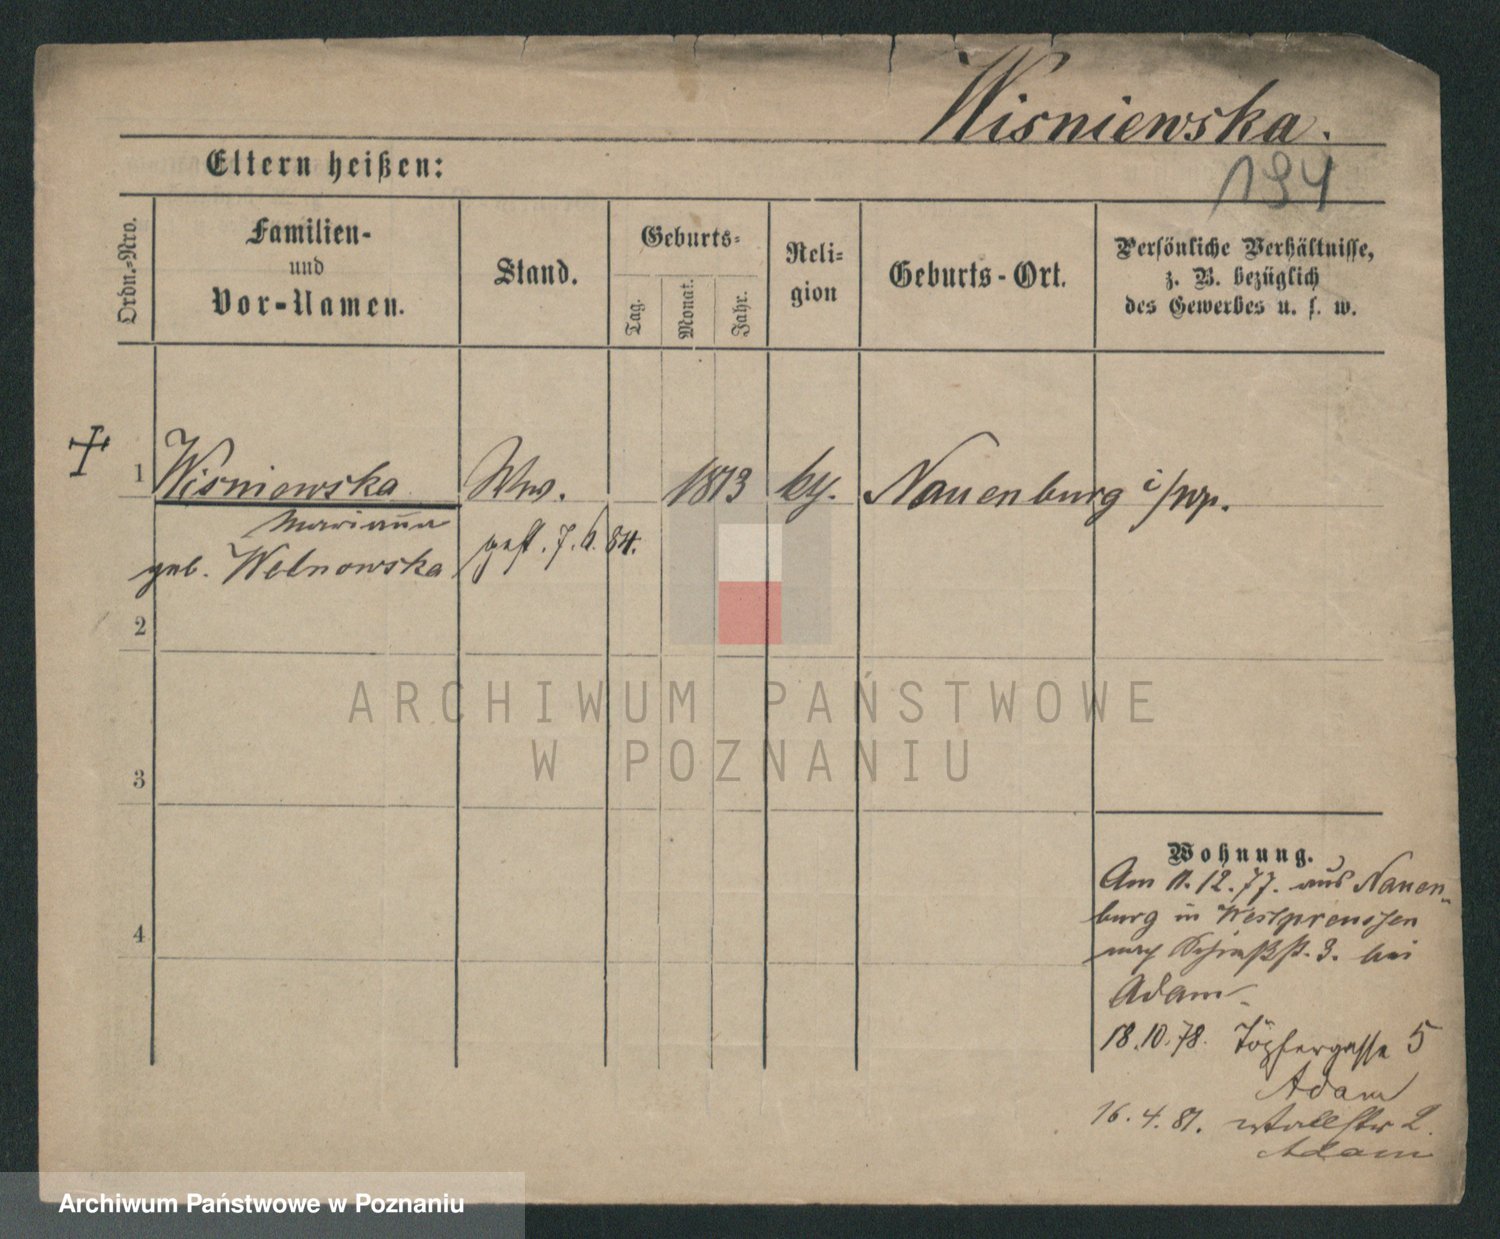 Wisniewska.
194
Eltern heißen:
Ordn.-Nro.
Familien-
und
Vor-Namen.
Stand.
Geburts-
Tag.
Monat.
Jahr.
Reli-
gion
Geburts-Ort.
Persönliche Verhältnisse,
z. B. bezüglich
des Gewerbes u. s. w.
1 Wisniewska Ww. 1813 k. Nauenburg i/wp.
Marianna
geb. Welnowska
gest. 7. 6. 84.
2
3
4
ARCHIWUM PAŃSTWOWE
W POZNANIU
Wohnung.
Am 11.12.77. aus Nauen-
burg in Westpreussen
nach 3. bei
Adam
18.10.78. Töpfergasse 5
Adam
16.4.81. Wallstr 2.
Adam
Archiwum Państwowe w Poznaniu